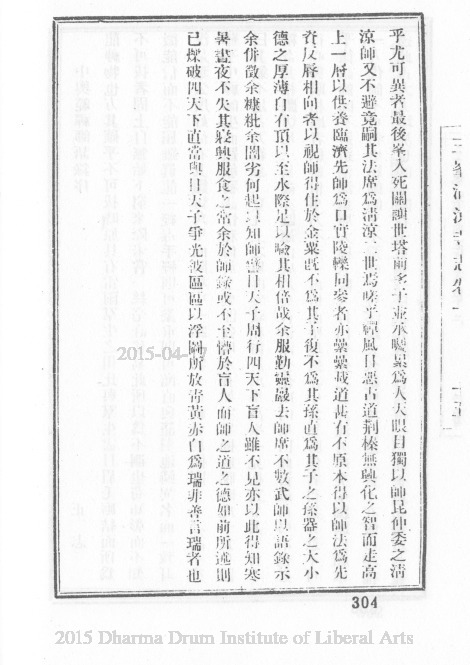 乎尤可異者最後峯入死關讖世塔前多子並承囑累為人天眼目獨以師昆仲委之清
涼師又不避竟嗣其法席為清涼二世焉嗟乎禪風日惡古道荆榛無興化之智而走高
上一層以供養臨濟先師為口實陵轢同參者亦纍纍哉道甚有不原本得以師法為先
資反唇相向者以視師得住於金粟既不為其子復不為其孫直為其子之孫器之大小
德之厚薄自有頂以至水際足以喻其相倍哉余服勤靈巖去師席不數武師以語錄示
余併徵余糠枇余闇劣何起以知師嘗日天子周行四天下盲人雖不見亦以此得知寒
暑晝夜不失其寢興服食之常余於師錄或不至懵於盲人而師之道之德如前所述則
已爍破四天下直當與日天子爭光彼區區以浮圖所放青黃赤白為瑞非善言瑞者也
304
2015 Dharma Drum Institute of Liberal Arts